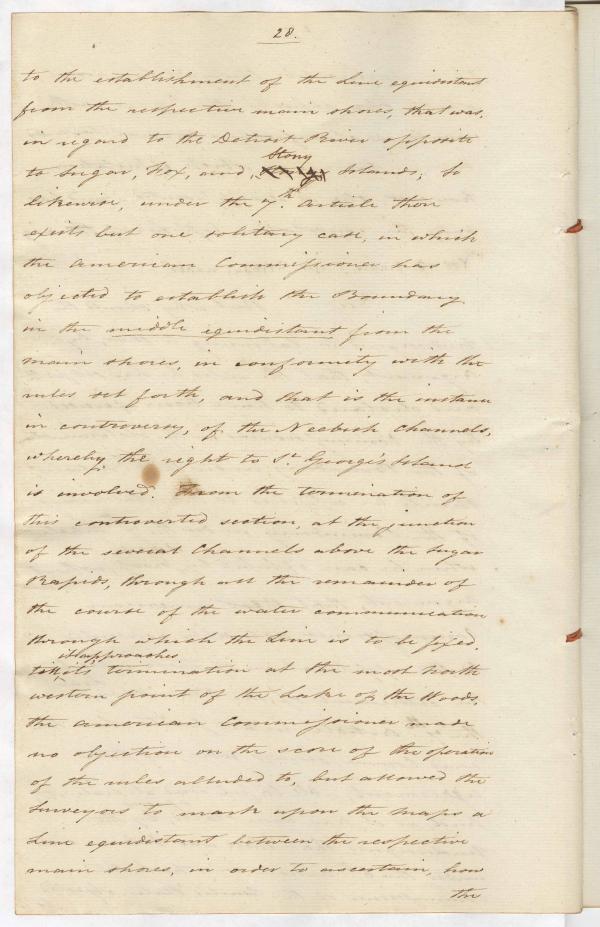 28.
to the establishment of the Line equidistant
from the respective main shores, that was,
in regard to the Detroit River opposite
Stony
to Sugar, Fox, and, Islands; So
likewise, under the 7.th Article there
exists but one solitary case, in which
the American Commissioner has
objected to establish the Boundary
in the middle equidistant from the
main shores, in conformity with the
rules set forth, and that is the instance
in controversy, of the Neebish Channels,
whereby, the right to St. George's Island
is involved. From the termination of
this controverted section, at the junction
of the several Channels above the Sugar
Rapids, through all the remainder of
the course of the water communication
through which the Line is to be fixed,
it approaches
till its termination at the most North
western point of the Lake of the Woods,
the American Commissioner made
no objection on the score of the operation
of the rules alluded to, but allowed the
Surveyors to mark upon the Maps a
Line equidistant between the respective
main shores, in order to ascertain, how
the